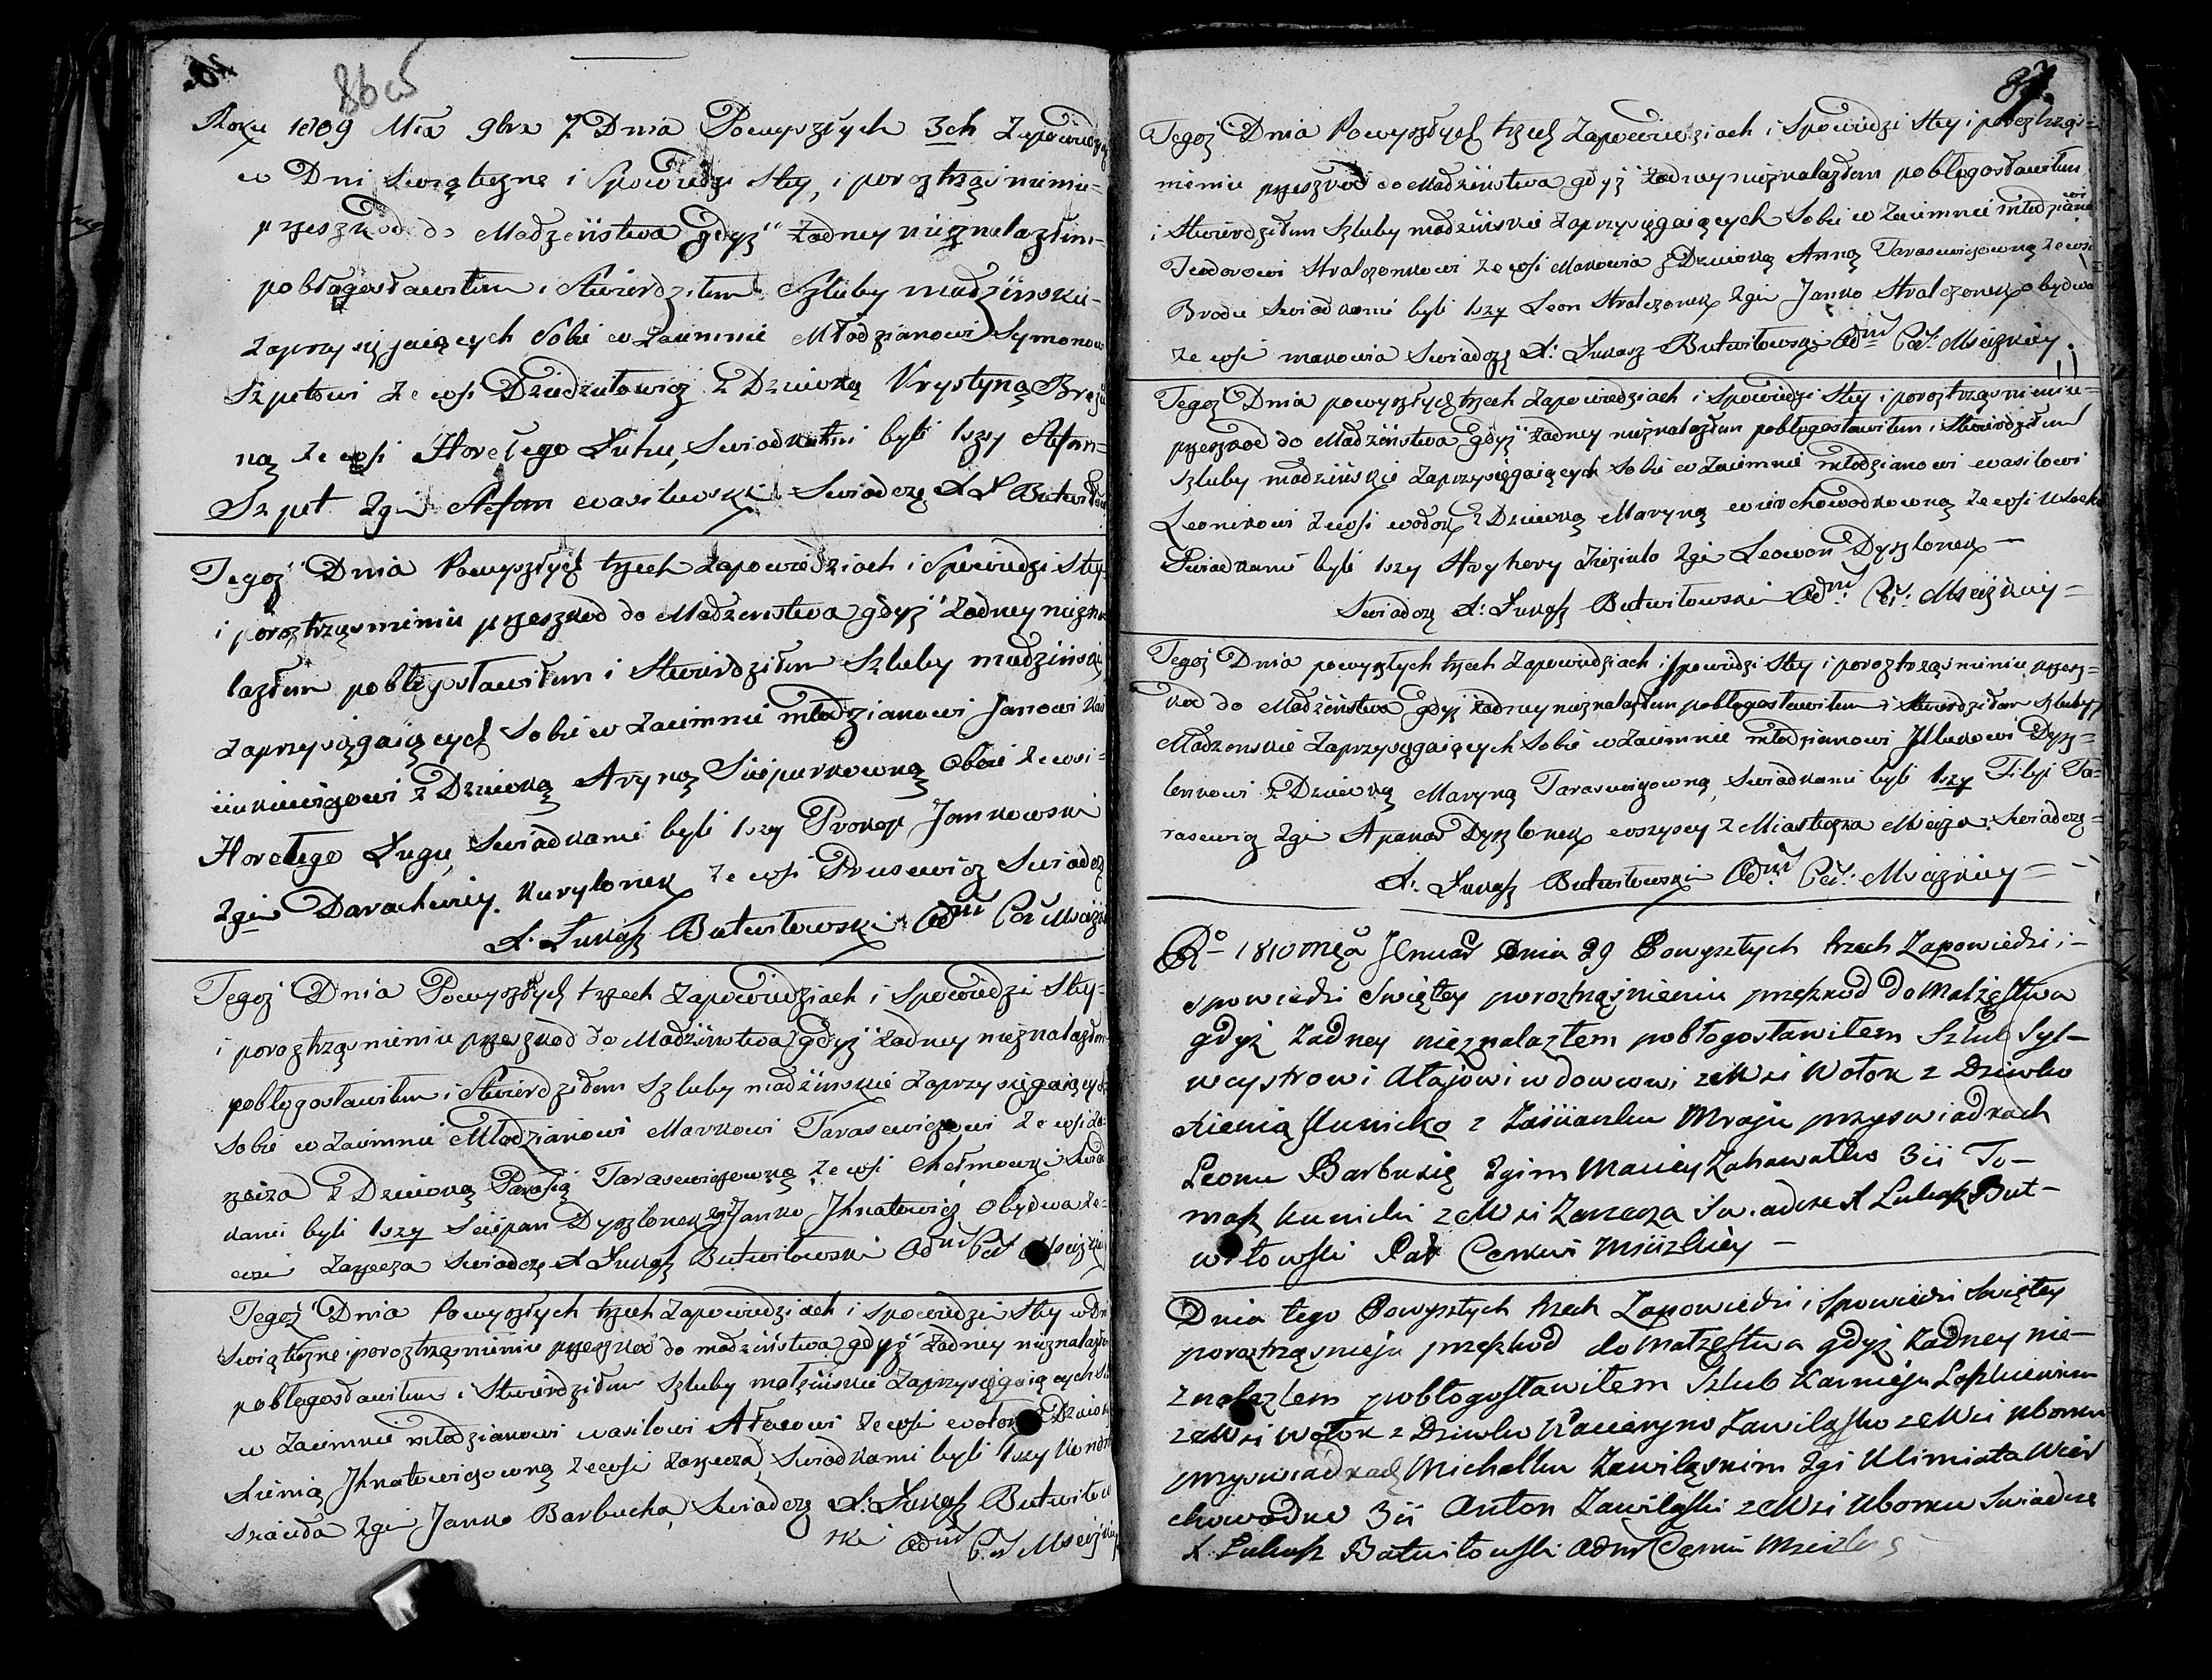 86 об
Roku 1809 Mca 9bra 7 Dnia Powyszłych 3ch Zapowiedzi
w Dni Swiąteczne i Spowiedzi Stey, i poroztrząsnieniu
przeszkod do Madzeństwa Gdyż żadney nieznalazłem
pobłagosławiłem i Stwierdziłem Szluby madżeńskie
zaprzysięgaiących Sobie w Zaiemnie Młodzianowi Symonowi
Szpetowi ze wsi Dziedziułowicz z Dziewką Krystyną
ną ze wsi Horełego Łuhu, Swiadkami byli 1szy Stefan
Szpet 2gi Stefan wasilewski Swiadczę X Ł
Tegoż Dnia Powyszłych trzech zapowiedziach i Spowiedzi Stey
i poroztrząsnieniu przeszkod do Madżenstwa gdyż żadney niezna
lazłem pobłogosławiłem i Stwierdziłem Szluby madżińskie
zaprzysięgaiących Sobie w Zaiemnie młodzianowi Janowi
z Dziewką Aryną Sciepurkowną Oboie ze wsi
Horełego Ługu, Swiadkami byli 1szy Prokop Jankowski
2gi Darachwiey Kurylonek ze wsi Prusewicz Swiadczę
X. Łukasz Butwiłowski Adm Cer Msciżkiey
Tegoż Dnia Powyszłych trzech zapowiedziach i Spowiedzi Stey
i poroztrząsnieniu przeszkod do Madżeństwa Gdyż żadney nieznalazłem
pobłogosławiłem i Stwierdziłem Szluby madżeńskie zaprzysięgaiących
Sobie w zaiemnie Młodzianowi Markowi Tarasewiczowi ze wsi Za
rzecza z Dziewką Parasią Tarasewiczowną ze wsi Swiad
kami byli 1szy Sciepan Dyszlonek 2gi Janko Jhnatowicz Obydwa ze
wsi Zarzecza Swiadczę X Łukasz Butwiłowski Adm Cer Msciżkiey
Tegoż Dnia Powyszłych trzech zapowiedziach i Spowiedzi Stey w Dni
Swiąteczne i poroztrząsnieniu przeszkod do madżeństwa gdyż żadney nieznalazłem
pobłogosławiłem i Stwierdziłem Szluby małżeńskie zaprzysięgaiących
w Zaiemnie młodzianowi wasilowi Ałaiowi ze wsi wołok z Dziewką
Xienią Jhnatowiczowną ze wsi Zarzecza, Swiadkami byli 1szy
2gi Janko Barbucha, Swiadczę X. Łukasz Butwiłow
ski Adm Cer Msciżkiey
87.
Tegoż Dnia Powyszłych trzech Zapowiedziach i Spowiedzi Stey i poroztrząs
nieniu przeszkod do Madżeństwa gdyż żadney nieznalazłem pobłogosławiłem
i Stwierdziłem Szluby madżeńskie zaprzysięgaiących Sobie w Zaiemnie młodzianowi
Teodorowi Stralczonkowi ze wsi Makowia z Dziewką Anną Tarasewiczowną ze wsi
Brodu Swiadkami byli 1szy Leon Stralczonek 2gi Janko Stralczonek obydwa
ze wsi makowia Swiadczę X: Łukasz Butwiłowski Adm Cer: Msciżkiey
Tegoż Dnia powyszłych trzech Zapowiedziach i Spowiedzi Stey i poroztrząsnieniu
przeszkod do Madżeństwa gdyż żadney nieznalazłem pobłogosławiłem i Stwierdziłem
Szluby madżeńskie Zaprzysięgaiących Sobie w Zaiemnie młodzianowi wasilowi
Leonikowi ze wsi wołok z Dziewką Maryną wierchowodkowną ze wsi
Swiadkami byli 1szy Hryhory 2gi Leowon Dyszlonek
Swiadczę X: Łukasz Butwiłowski Adm: Cer: Msciżkiey
Tegoż Dnia powyszłych trzech Zapowiedziach i Spowiedzi Stey i poroztrząsnieniu przesz
kod do Madżeństwa Gdyż żadney nieznalazłem pobłogosławiłem i Stwierdziłem Szluby
Madżenskie Zaprzysięgaiących Sobie w Zaiemnie młodzianowi Dysz
lonkowi z Dziewką Maryną Tarasewiczowną, Swiadkami byli 1szy Filip Ta
rasewicz 2gi Apanas Dyszlonek wszyscy z Miasteczka Msciża. Swiadczę
X. Łukasz Butwiłowski Adm: Cer: Msciżkiey
Ro 1810 Mca Jenuar Dnia 29 Powyszłych trzech Zapowiedzi i
spowiedzi Swiętey poroztrząśnieniu przeszkod do Małżęstwa
gdyż żadney nieznalazłem pobłogosławiłem Szlub Syl
wystrowi Ałajowi wdowcowi ze Wsi Wołok z Dziwko
Xienią Kunicko z Zaścianku Mraju przyswiadkach
Leonu Barbusię 2gim Maciey Zahawałko 3ci To
masz Kunicki ze Wsi Zarzecza Swiadcze X Lukasz But
wiłowski Par Cerkwi Msciżkiey
Dnia tego Powyszłych trzech Zapowiedzi i Spowiedzi Swiętey
poroztrząsnieju przeszkod do małżęstwa gdyż żadney nie
znalazłem pobłogosławiłem Szlub Karnieju
ze Wsi Wołok z Dziwko Kacieryno Zawilasko ze Wsi Uborku
przyswiadkach Michałku Zawiląskim 2gi Klimiata Wier
chowodko 3ci Anton Zawilaski ze Wsi Uborku Swiadcze
X Lukasz Butwiłowski Adm Cerkwi